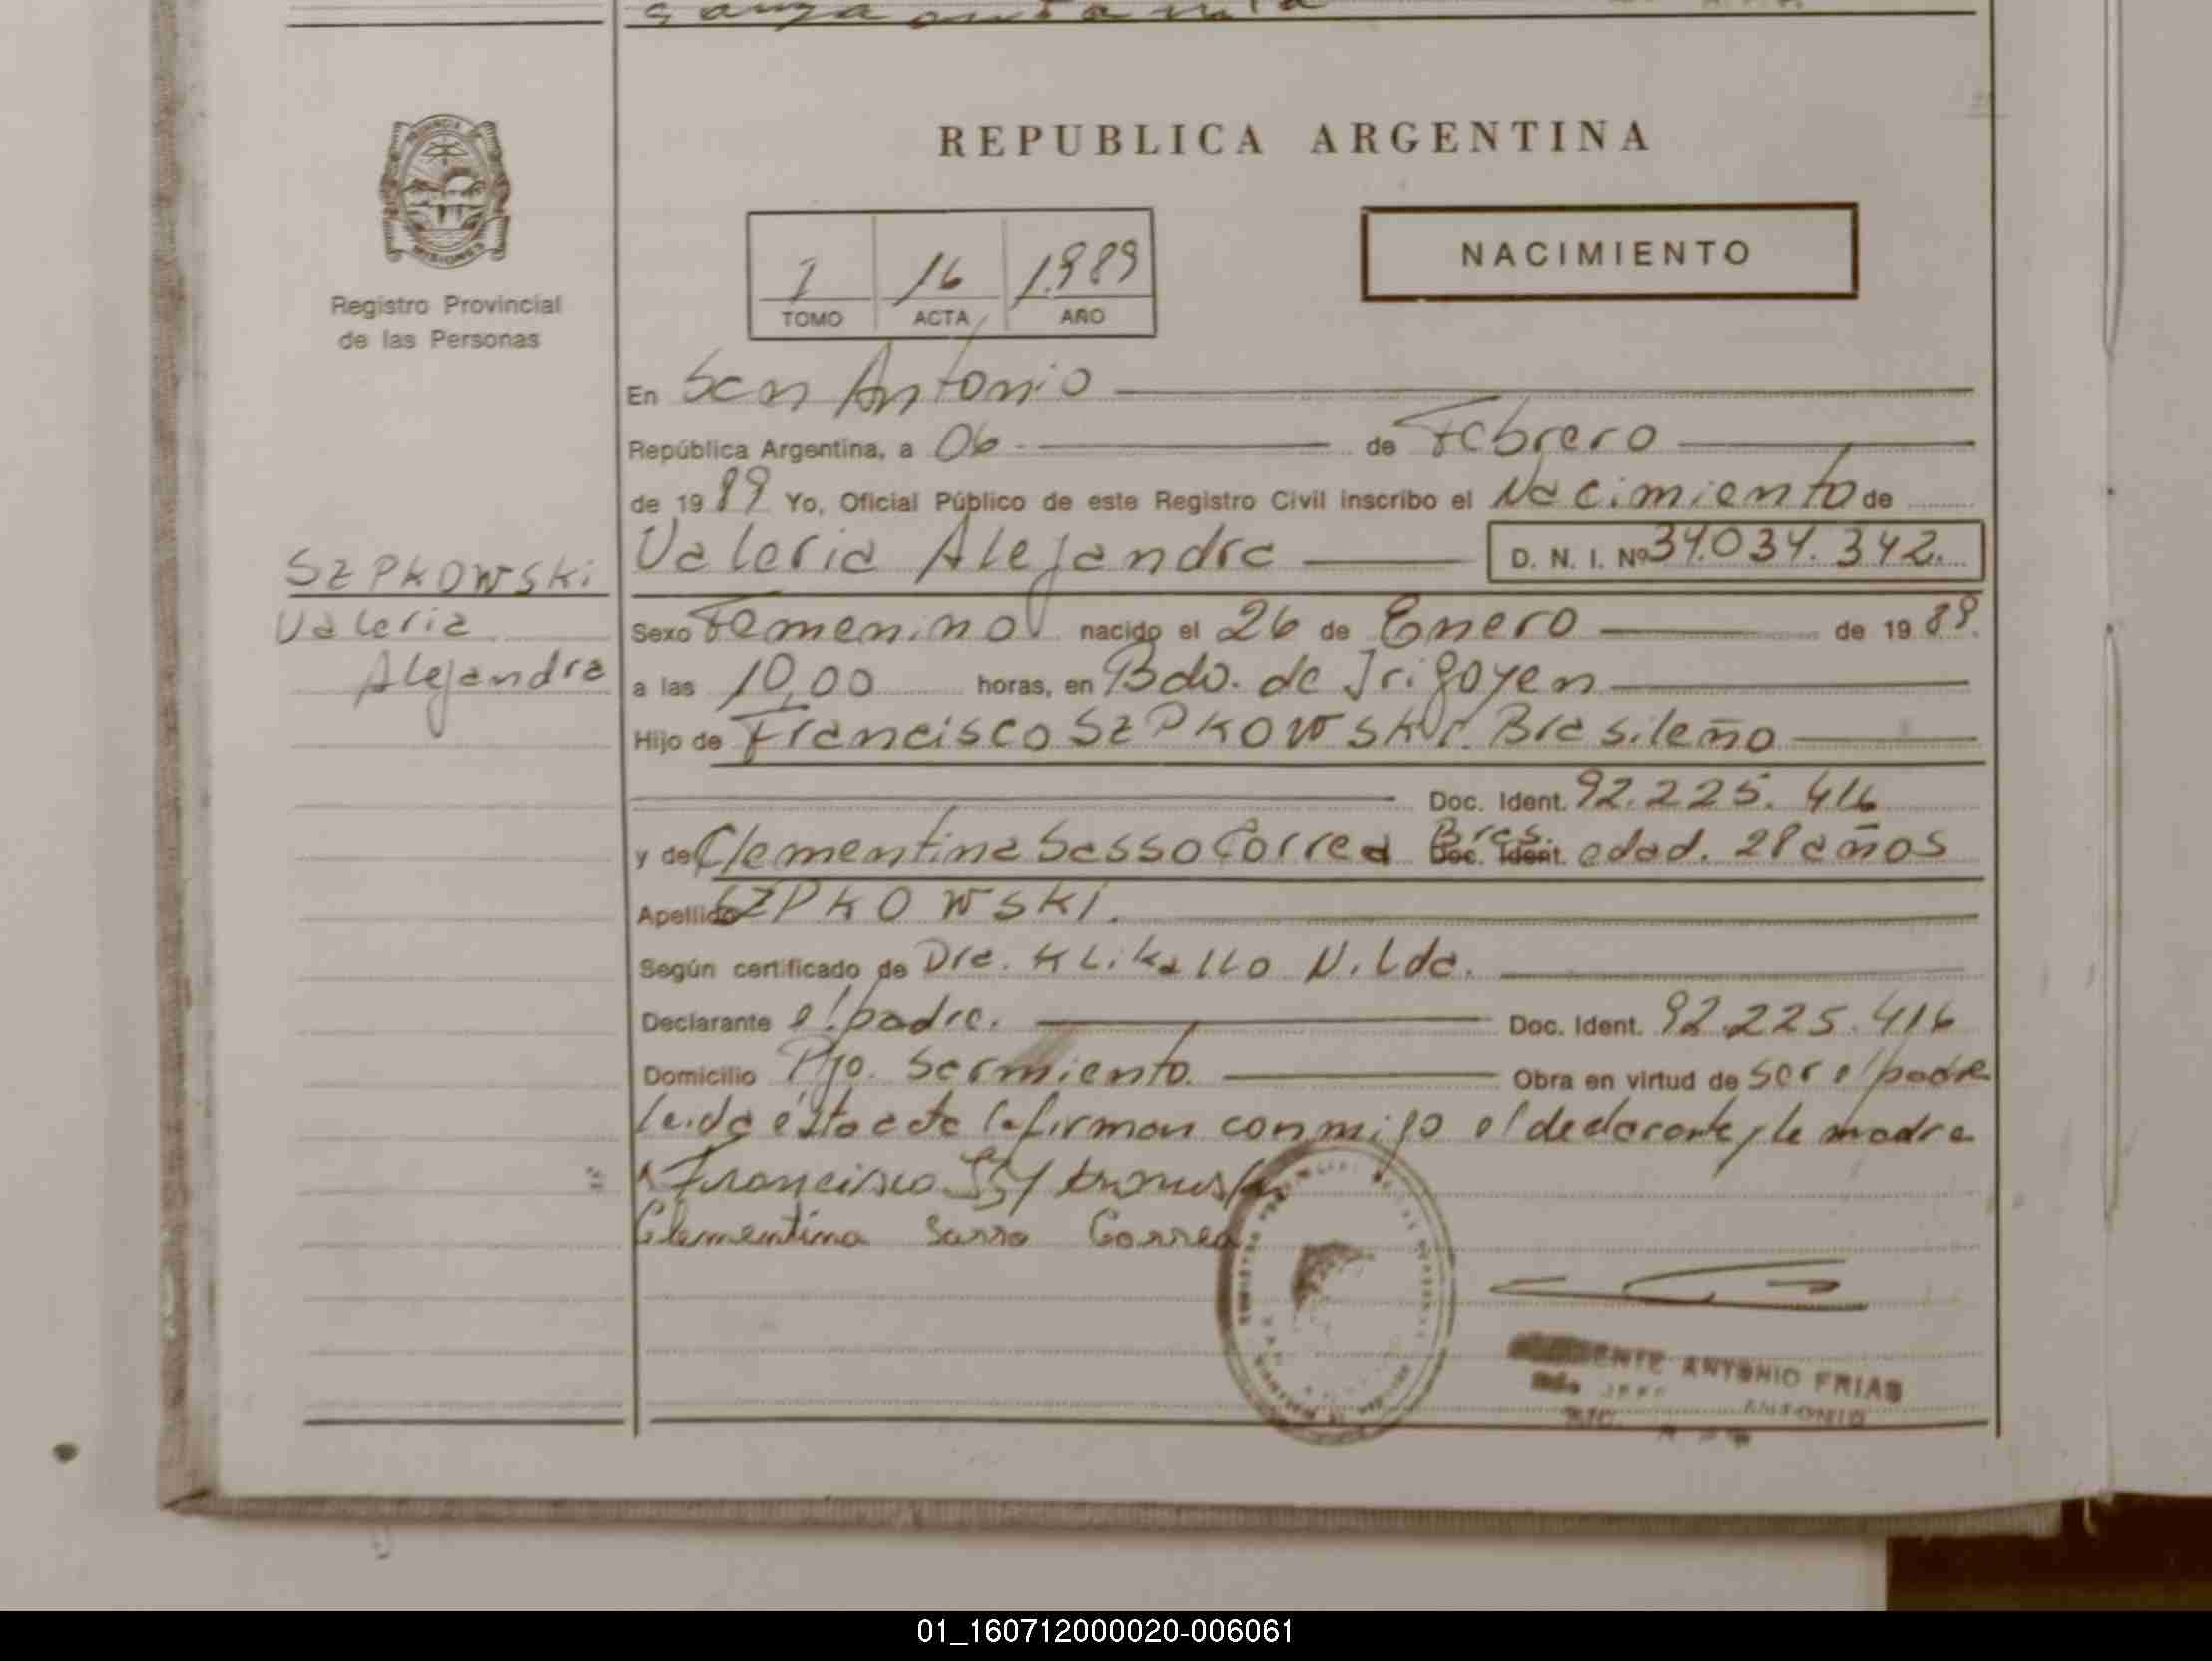 REPUBLICA ARGENTINA
PROVINCIA DE
MISIONES
Registro Provincial
de las Personas
1 16 1989
TOMO ACTA AÑO
NACIMIENTO
En San Antonio
República Argentina, a 06 de Febrero
de 1989 Yo, Oficial Público de este Registro Civil inscribo el Nacimiento de
SZPKOWSKi
Valeria
Alejandra
Valeria Alejandra D. N. I. Nº 34.034.342.
Sexo Femenino nacido el 26 de Enero de 1989.
a las 10,00 horas, en Bdo. de Irigoyen
Hijo de Francisco SZPKOWSKi. Brasileño
Doc. Ident. 92.225.416
y de Clementina Sasso Correa Bras. Doc. Ident. edad. 28 años
Apellido SZPKOWSKi.
Según certificado de Dra. Nilda.
Declarante el padre. Doc. Ident. 92.225.416
Domicilio Pjo. Sarmiento. Obra en virtud de ser el padre
Leida ésta acta la firman conmigo el declarante y la madre
Francisco
Clementina Sasso Correa
ANTONIO FRIAS
ANTONIO
01_160712000020-006061